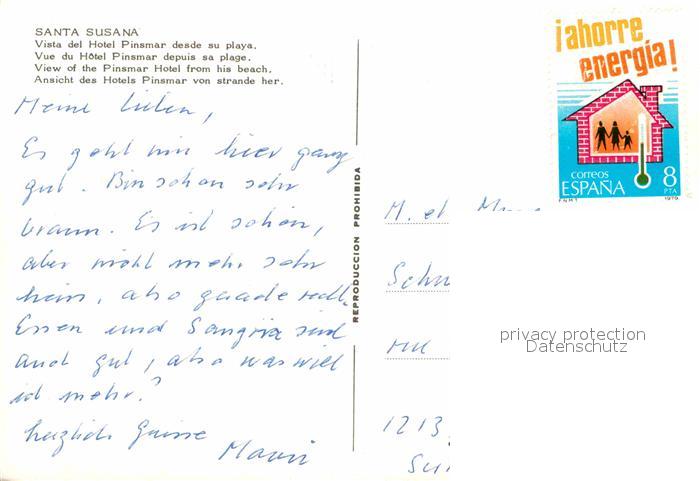 SANTA SUSANA
Vista del Hotel Pinsmar desde su playa.
Vue du Hôtel Pinsmar depuis sa plage.
View of the Pinsmar Hotel from his beach.
Ansicht des Hotels Pinsmar von strande her.
Meine Lieben,
Es geht mir hier ganz
gut. Bin schon sehr
braun. Es ist schön,
aber nicht mehr sehr
heiss, also gerade recht.
Essen und Sangria sind
auch gut, also was will
ich mehr?
herzliche Grüsse
REPRODUCCION PROHIBIDA
¡ahorre
energía!
correos
ESPAÑA
8
PTA
F.N.M.T.
1979
M. et
1213
privacy protection
Datenschutz